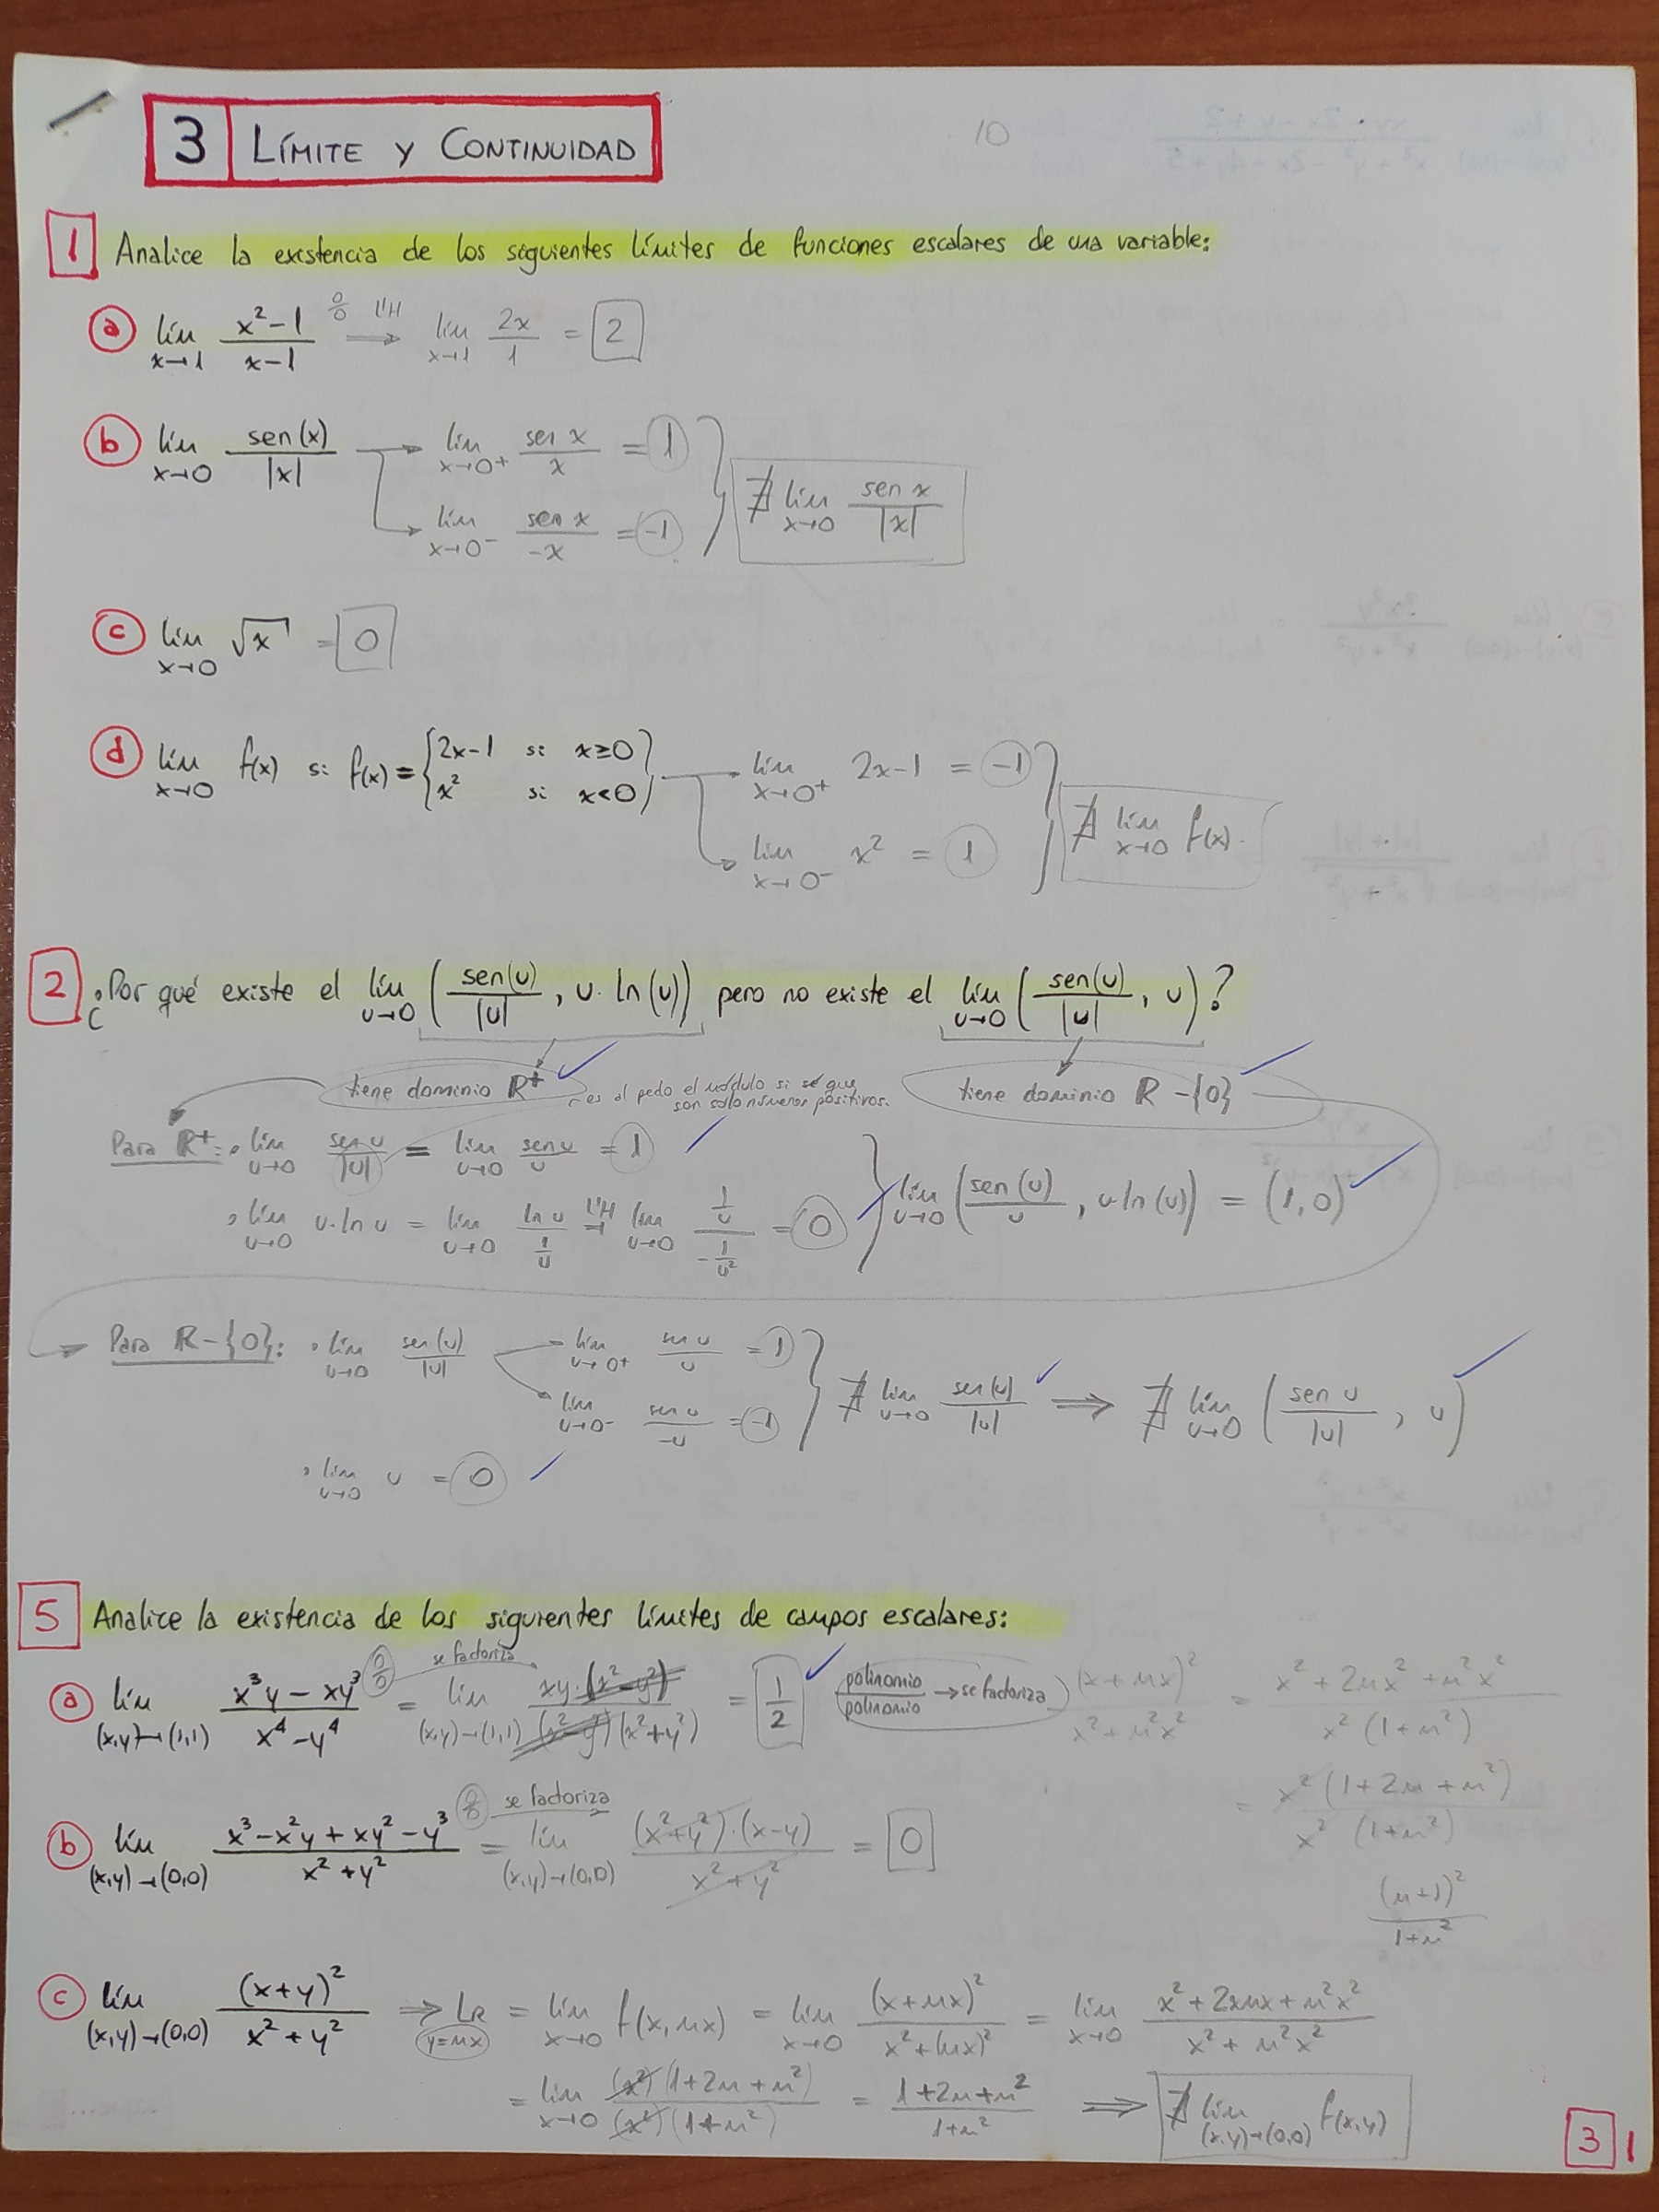 3 LÍMITE Y CONTINUIDAD
10
1 Analice la existencia de los siguientes límites de funciones escalares de una variable:
a) lím x→1 (x²-1)/(x-1) 0/0 L'H → lím x→1 2x/1 = 2
b) lím x→0 sen(x)/|x| → lím x→0+ sen x/x = 1
lím x→0- sen x/-x = -1 } ∄ lím x→0 sen x/|x|
c) lím x→0 √x = 0
d) lím x→0 f(x) si f(x) = { 2x-1 si x≥0 ; x² si x<0 } → lím x→0+ 2x-1 = -1
lím x→0- x² = 1 } ∄ lím x→0 f(x).
2 ¿Por qué existe el lím u→0 (sen(u)/|u|, u·ln(u)) pero no existe el lím u→0 (sen(u)/|u|, u)?
tiene dominio R+
es al pedo el módulo si sé que
son solo números positivos.
tiene dominio R-{0}
Para R+: • lím u→0 sen u/|u| = lím u→0 sen u/u = 1
• lím u→0 u·ln u = lím u→0 ln u/(1/u) L'H = lím u→0 (1/u)/(-1/u²) = 0 } lím u→0 (sen(u)/u, u·ln(u)) = (1,0)
Para R-{0}: • lím u→0 sen(u)/|u| → lím u→0+ sen u/u = 1
lím u→0- sen u/-u = -1 } ∄ lím u→0 sen(u)/|u| ⇒ ∄ lím u→0 (sen u/|u|, u)
• lím u→0 u = 0
5 Analice la existencia de los siguientes límites de campos escalares:
a) lím (x,y)→(1,1) (x³y-xy³)/(x⁴-y⁴) 0/0 se factoriza = lím (x,y)→(1,1) xy·(x²-y²)/(x²-y²)(x²+y²) = 1/2 polinomio/polinomio → se factoriza
(x+mx)²/(x²+m²x²) = (x²+2mx²+m²x²)/(x²(1+m²))
= x²(1+2m+m²)/(x²(1+m²))
(m+1)²/(1+m²)
b) lím (x,y)→(0,0) (x³-x²y+xy²-y³)/(x²+y²) 0/0 se factoriza = lím (x,y)→(0,0) (x²+y²)·(x-y)/(x²+y²) = 0
c) lím (x,y)→(0,0) (x+y)²/(x²+y²) ⇒ LR y=mx = lím x→0 f(x,mx) = lím x→0 (x+mx)²/(x²+(mx)²) = lím x→0 (x²+2xmx+m²x²)/(x²+m²x²)
= lím x→0 (x²)(1+2m+m²)/(x²)(1+m²) = (1+2m+m²)/(1+m²) ⇒ ∄ lím (x,y)→(0,0) f(x,y)
3 1